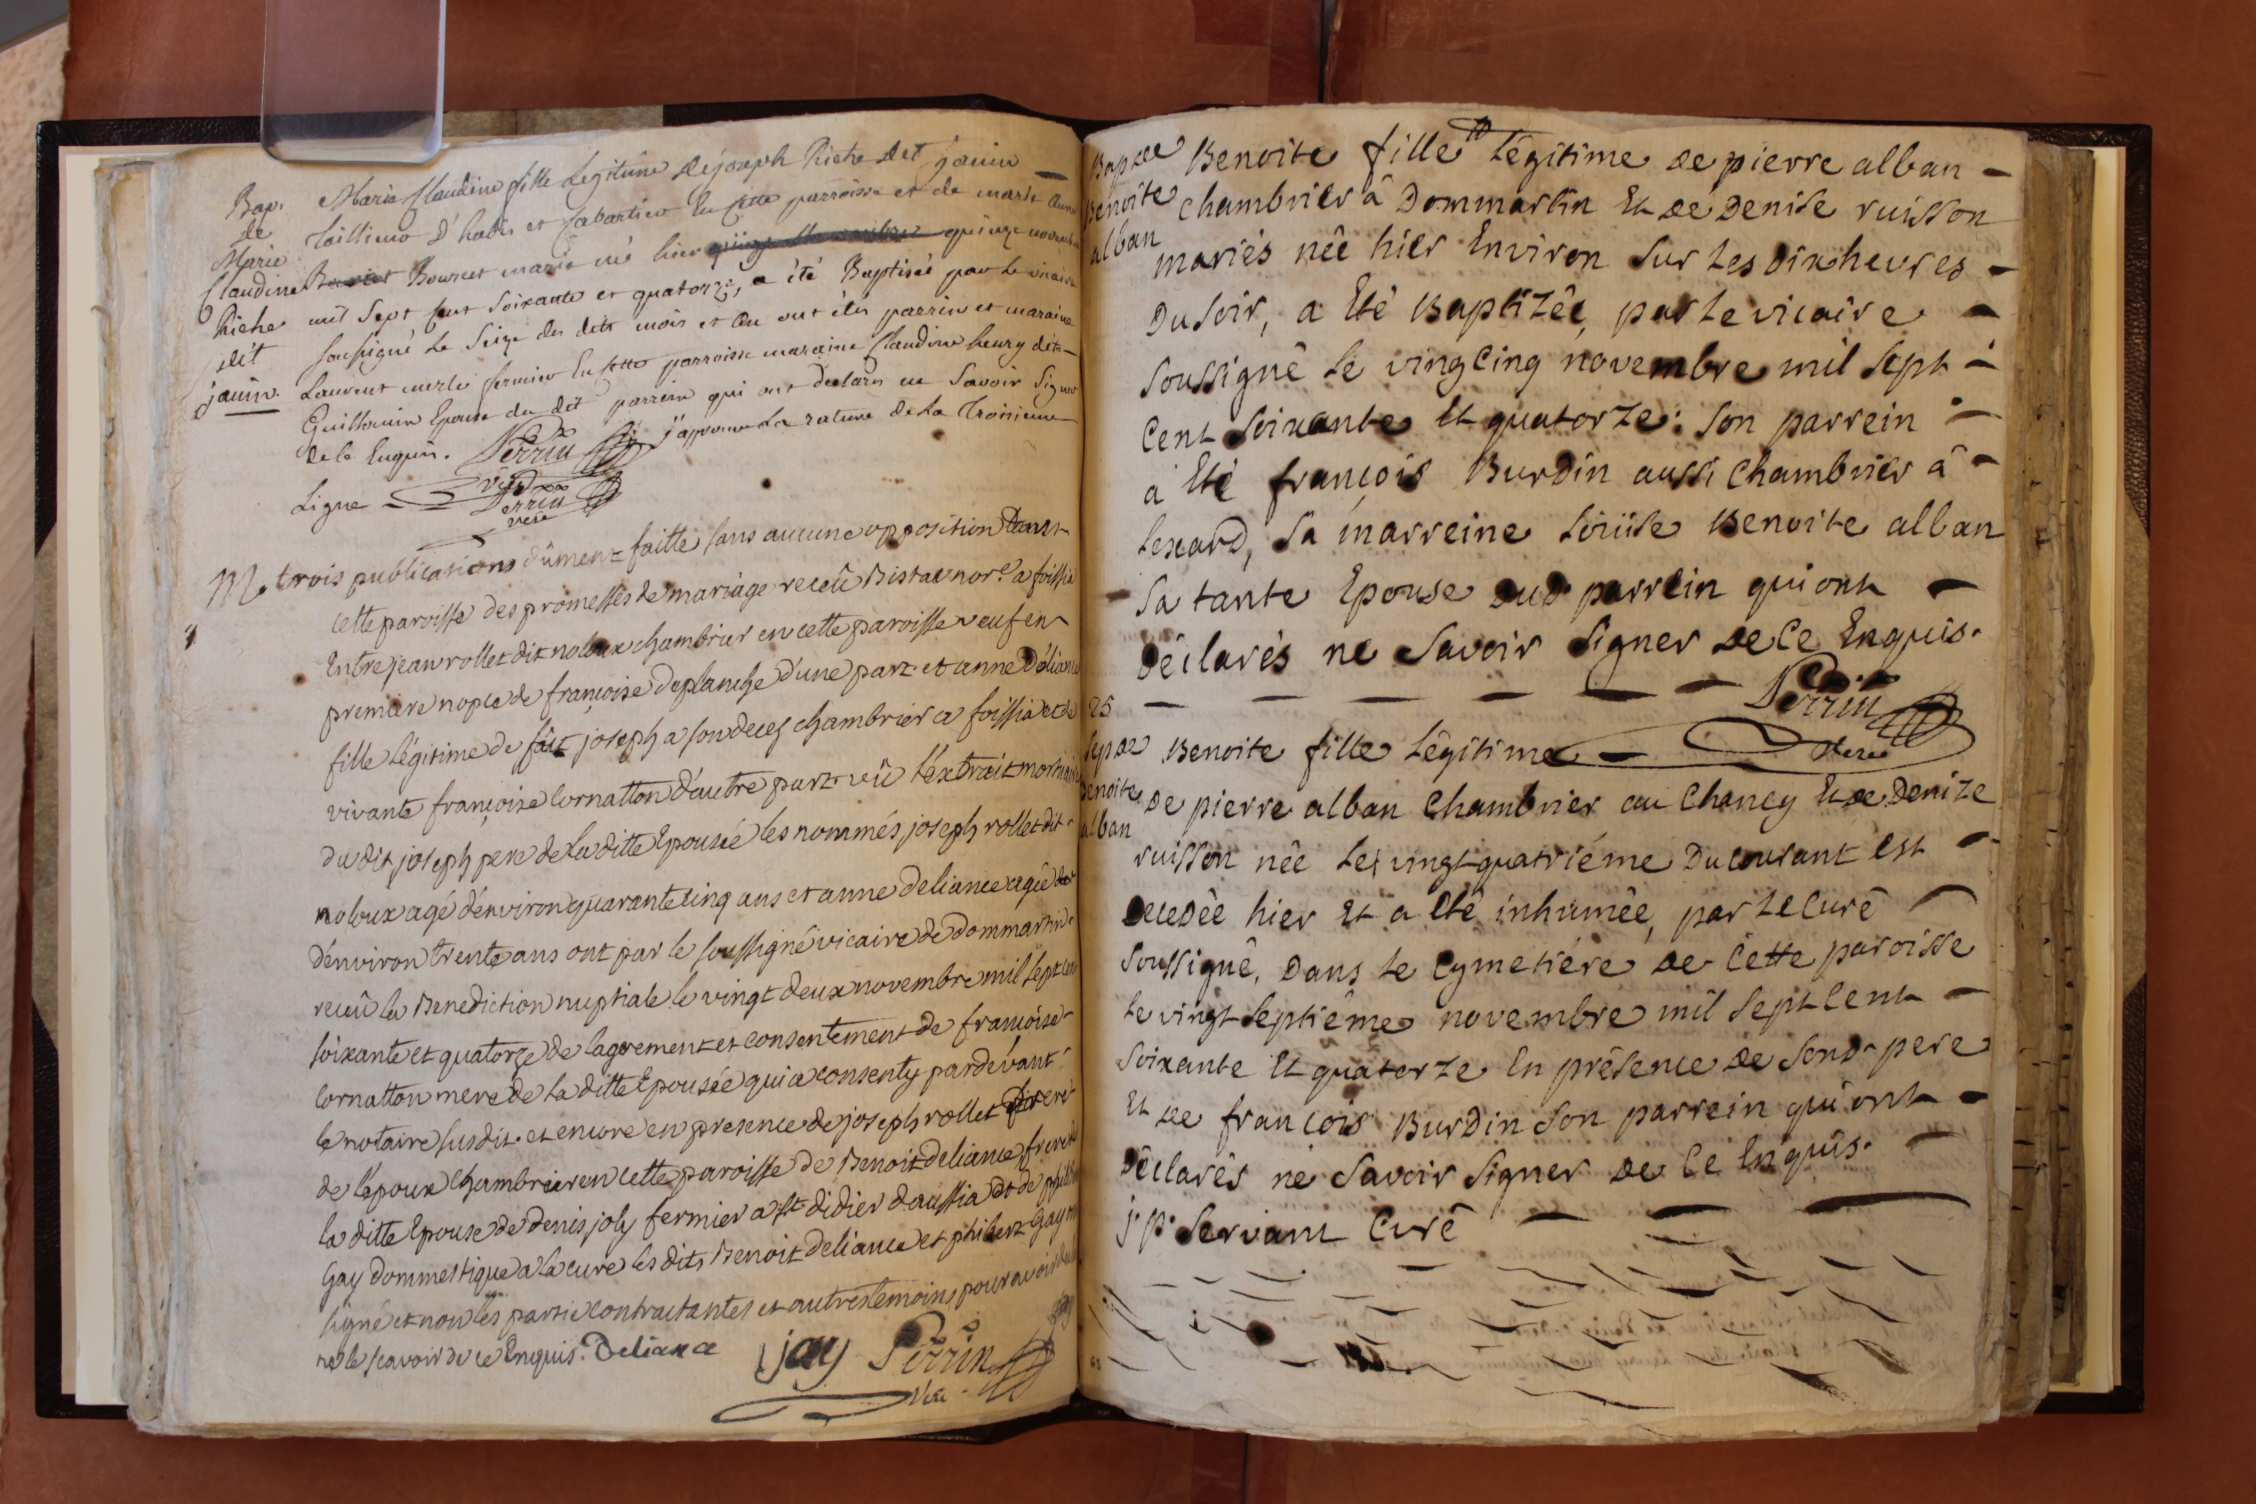 Bap.
de
Marie
Claudine
Riche
dêt
jauin.
Marie Claudine fille Légitime de joseph Riche dêt jauin
Tailleur d'habis et Cabartier En cette parroisse et de marie
Bouvret mariés né hier quinze novembre
mil Sept Cent Soixante et quatorze, a été Baptisée par le vicaire
Soussigné le Seize des dits mois et an ont étés parrein et maraine
Laurent merle fermier En cette parroisse maraine Claudine heury dite
Guillomin Epouse du dit parrein qui ont declarés ne Savoir Signer
de ce Enquis. Perrin j'approuve La rature de la Troisieme
Ligne Perrin
vire
M. trois publications dûment faitte sans aucune opposition dans
cette paroisse des promesses de mariage receû Bistac nore. a foissia
Entre jean rollet dit noloux chambrier en cette paroisse veuf en
premiere nopce de françoise deplanche d'une part et anne Déliance
fille légitime de fût joseph a son deces chambrier a foissia et de
vivante françoise Cornatton d'autre part vû l'extrait mortuaire
du dit joseph pere de la ditte Epousée les nommés joseph rollet dit
noloux agé d'environ quarante cinq ans et anne deliance agée
d'environ trente ans ont par le soussigné vicaire de dommartin
receû la Benediction nuptiale le vingt deux novembre mil sept cent
soixante et quatorze de lagrement et consentement de françoise
Cornatton mere de la ditte Epousée qui a consenty pardevant
le notaire susdit et encore en presence de joseph rollet frere
de l'epoux chambrier en cette paroisse de Benoit deliance frere de
la ditte Epouse de denis joly fermier a st didier daussia et de philibert
Gay dommestique a la cure les dits Benoit deliance et philibert Gay
signé et non les partie contractantes et autres temoins pour avoir
ne le scavoir de ce Enquis. Deliance jay Perrin
Vire
Bap de
Benoite
alban
Benoite fille Légitime de pierre alban
chambrier â Dommartin Et de Denise ruisson
mariés née hier Environ Sur les dix heures
Du soir, a Eté Baptizée, par le vicaire
Soussigné le vingcinq novembre mil Sept
Cent Soixante Et quatorze: Son parrein
a Eté françois Burdin aussi Chambrier â
Lexard, Sa marreine Loüise Benoite alban
Sa tante Epouse dud parrein qui ont
déclarés ne Savoir Signer de Ce Enquis.
Perrin
vire
25
Sep de
Benoite
alban
Benoite fille Légitime
De pierre alban Chambrier au Chancy Et de Denize
ruisson née le vingt quatriéme Du courant est
decedée hier Et a Eté inhumée, par Le Curé
Soussigné, Dans le Cymetiére de Cette paroisse
le vingt Septiême novembre mil Sept Cent
Soixante Et quatorze En présence de Sond. pere
Et de françois Burdin Son parrein qui ont
déclarés ne Savoir Signer de Ce Enquis.
j. p. Servant Curé